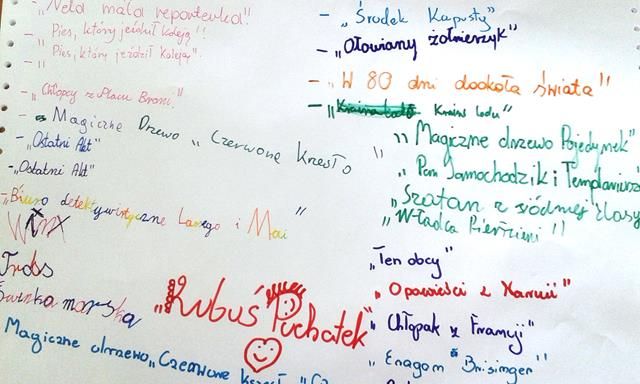 - „Nela mała reporterka!"
- „Pies, który jeździł koleją!!
- „Pies, który jeździł koleją".
- „Chłopcy z Placu Broni."
- Magiczne Drzewo „Czerwone Krzesło"
- „Ostatni Akt"
- „Ostatni Akt"
- „Biuro detektywistyczne Lassego i Mai"
Winx
Świnka morska
„Kubuś Puchatek"
Magiczne drzewo „Czerwone
- „Środek Kapusty"
- „Ołowiany żołnierzyk"
- „W 80 dni dookoła świata"
- „Kraina Lodu"
„Magiczne drzewo Pojedynek"
„Pan Samochodzik i Templariusz
„Szatan z siódmej klasy
„Władca Pierścieni"
„Ten obcy"
„Opowieści z Narnii"
„Chłopak z
„Eragon Brisinger"